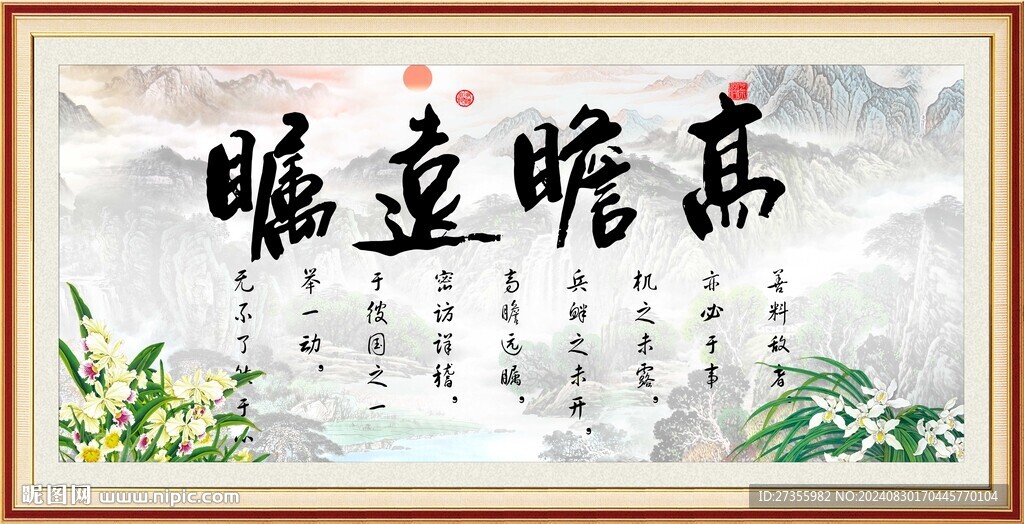 高瞻遠矚
善料敌者
亦必于事
机之未露，
兵衅之未开，
高瞻远瞩，
密访详稽，
于彼国之一
举一动，
无不了然于心
昵图网 www.nipic.com
ID:27355982 NO:20240830170445770104